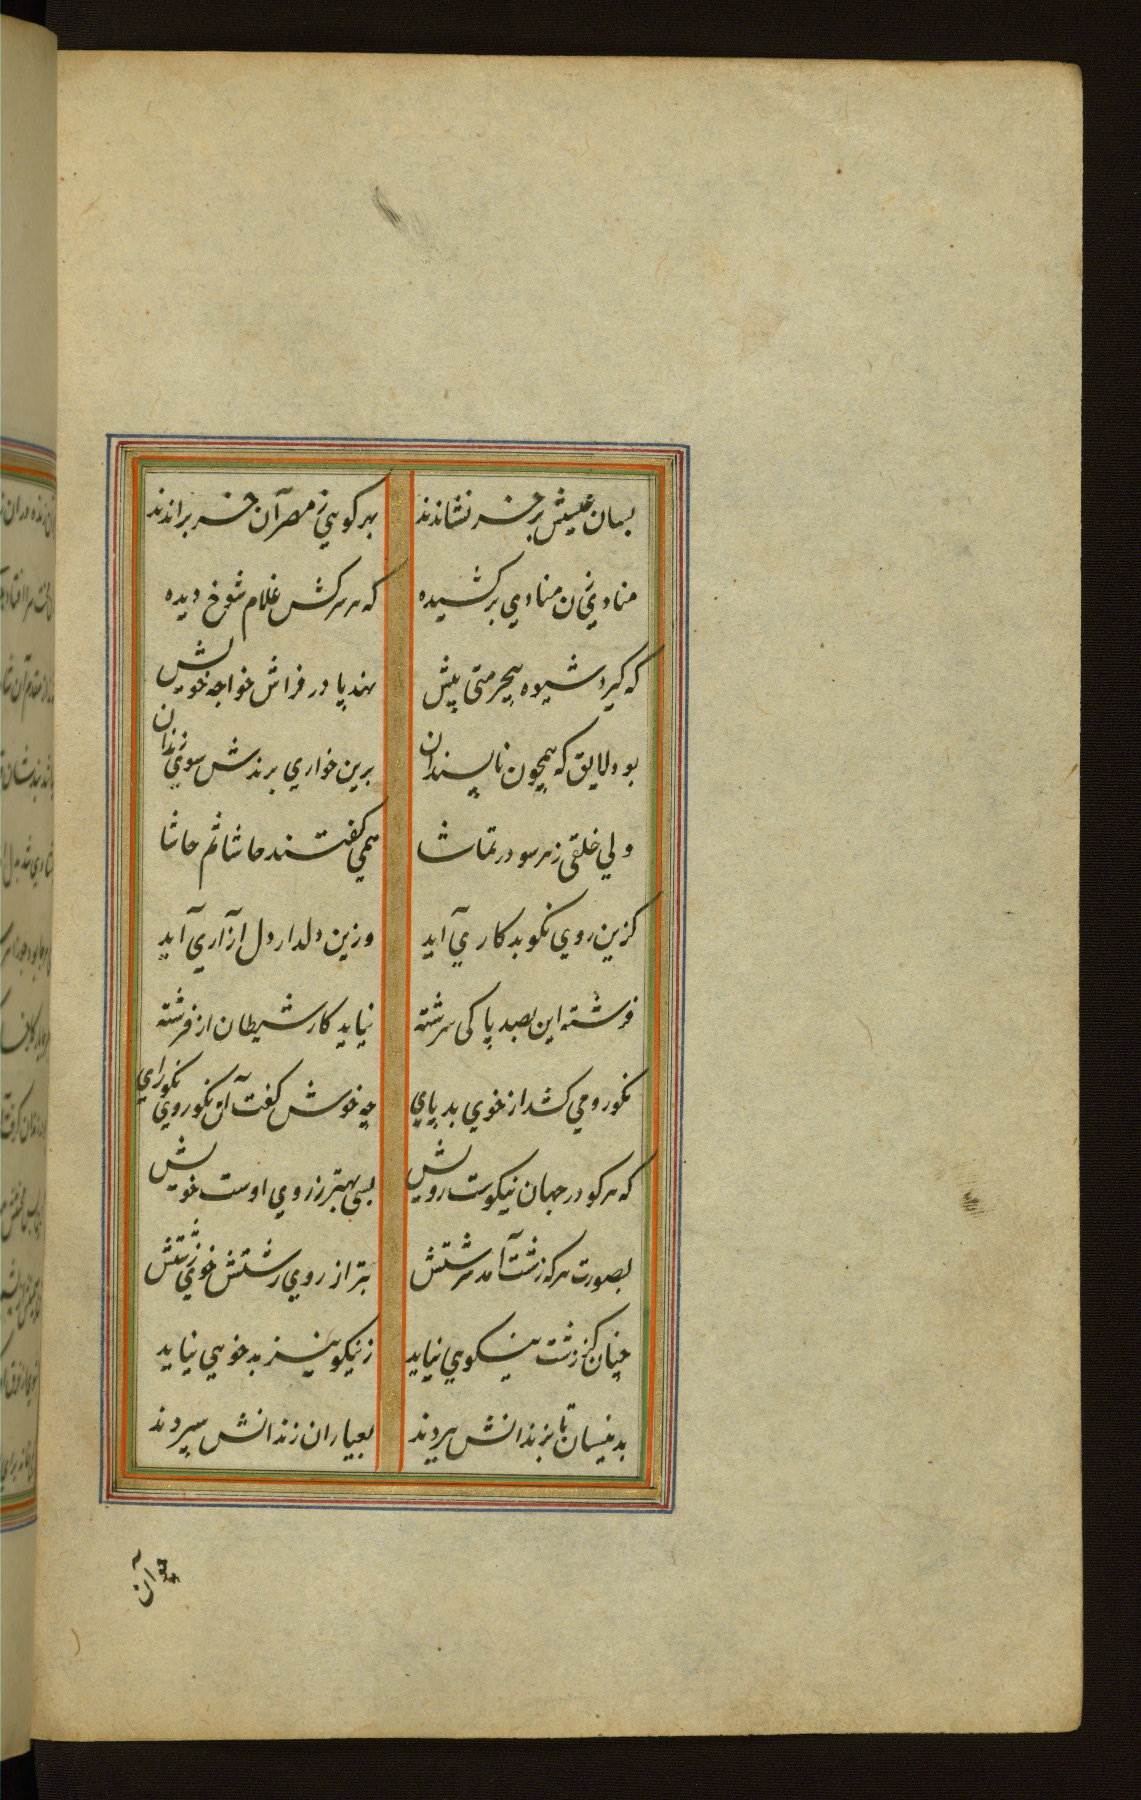 بسان عیسیش بر خر نشاندند بهر کویی ز مصر آن خر براندند
منادی زن منادی برکشیده که هر سرکش غلام شوخ دیده
که گیرد شیوه بیحرمتی پیش نهد پا در فراش خواجه خویش
بود لایق که همچون ناپسندان برین خواری برندش سوی زندان
ولی خلقی ز هر سو در تماشا همی گفتند حاشا ثم حاشا
کزین روی نکو بدکاری آید وزین دلدار دل آزاری آید
فرشته این بصد پاکی سرشته نیاید کار شیطان از فرشته
نکورو می کشد از خوی بد پای چه خوش گفت آن نکوروی نکورای
که هر کو در جهان نیکوست رویش بسی بهتر ز روی اوست خویش
بصورت هر که زشت آمد سرشتش بتر از روی زشتش خوی زشتش
چنان کز زشت نیکویی نیاید ز نیکو نیز بدخویی نیاید
بدینسان تا بزندانش بردند بعیاران زندانش سپردند
چو آن